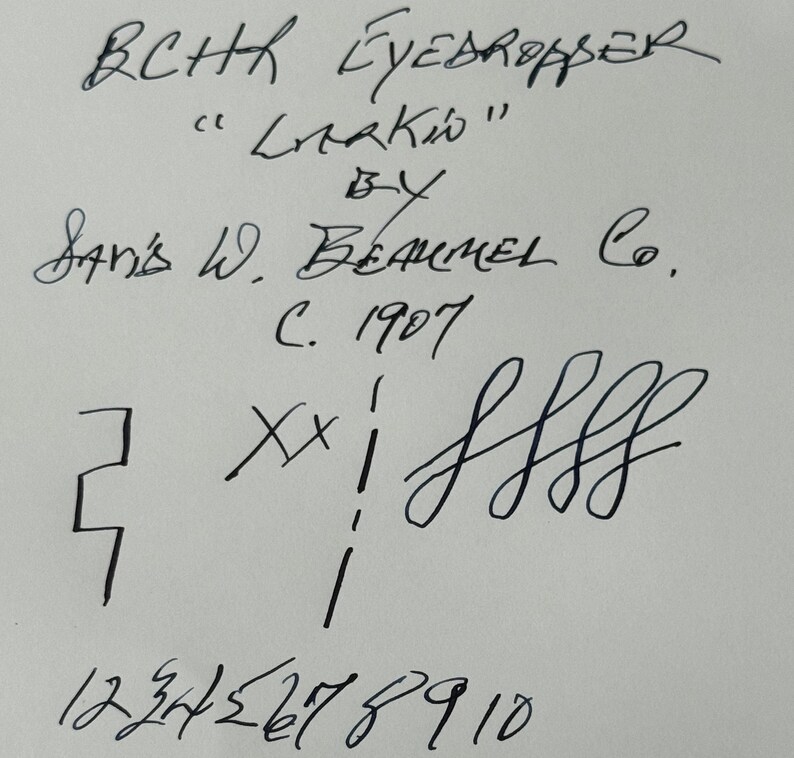 BCHR EYEDROPPER
"LARKIN"
BY
DAVIS W. BEAUMEL Co.
C. 1907
Xx
1 2 3 4 5 6 7 8 9 10